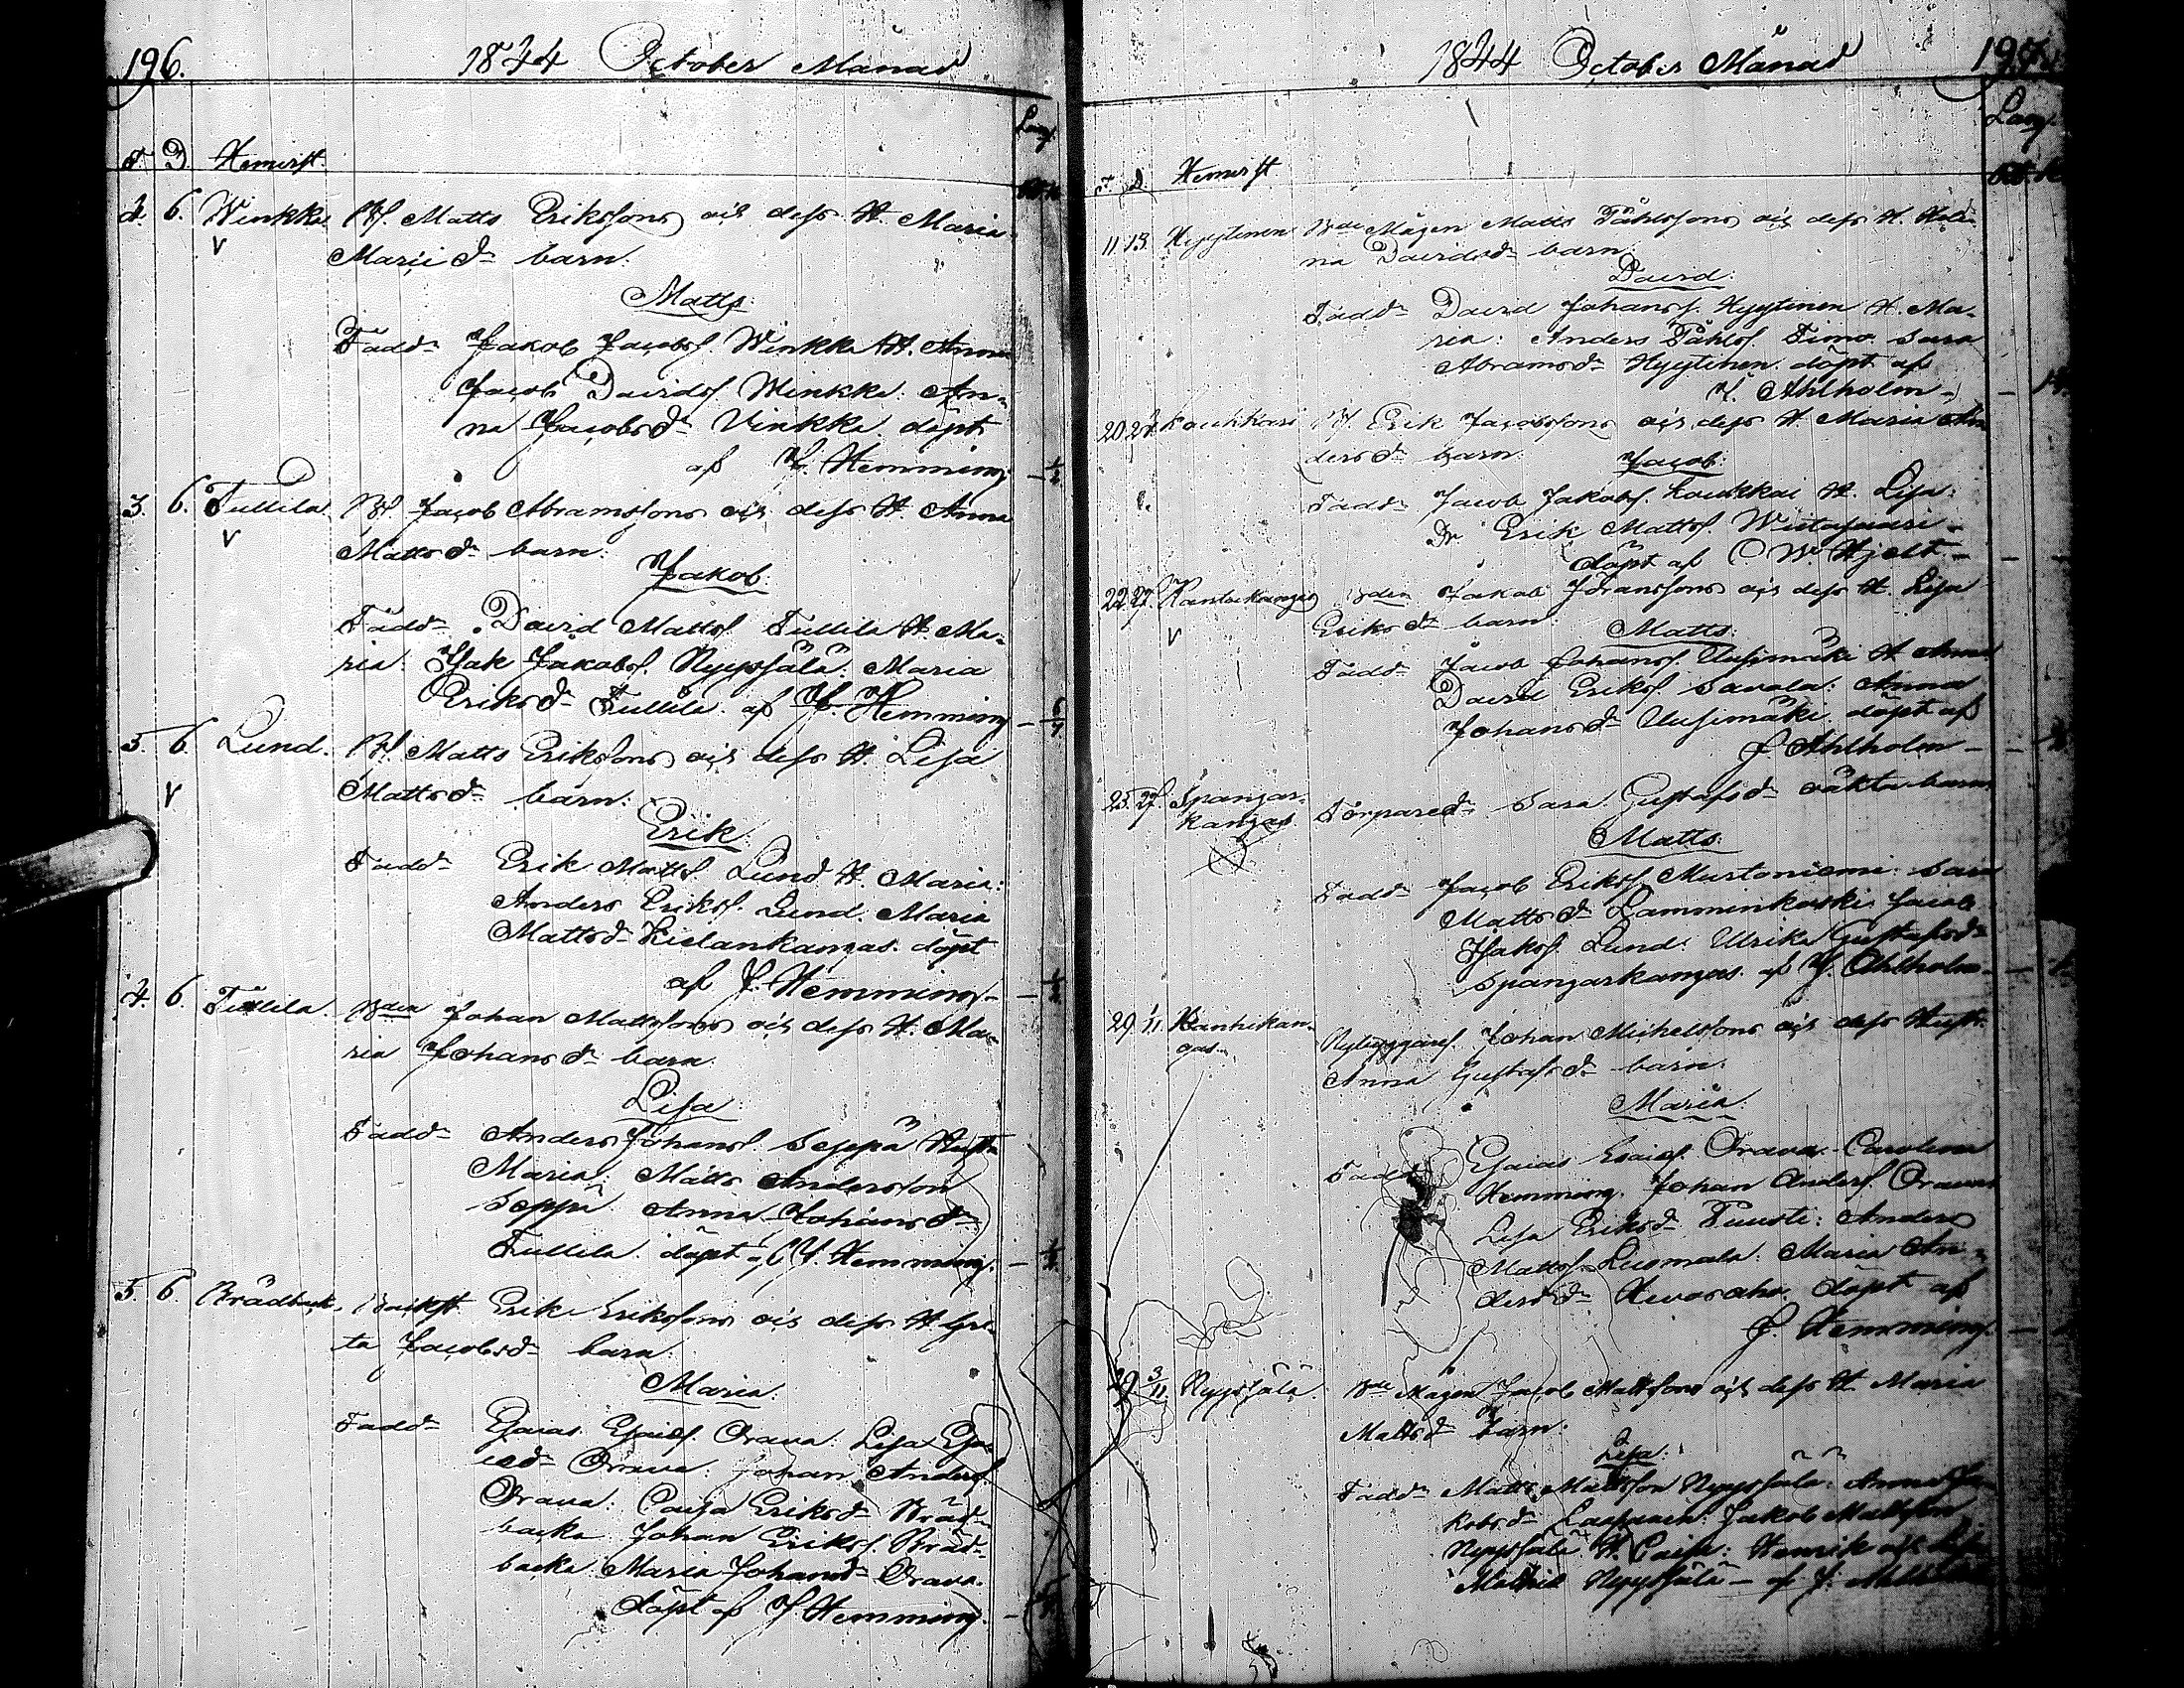 196.
1844 October Månad
Lösg.
F. D. Hemvist.
2. 6. Winkka Bf. Matts Erikssons och dess H. Maria
V Marii dr barn.
Matts.
Fadd: Jakob Jacobsf. Winkka H. Anna
Jacob Davidsf. Winkka. An-
na Jacobs dr Vinkka döpt
af J. Hemming.
3. 6. Tullila. Bf. Jacob Abramssons och dess H. Anna
V Matts dr barn.
Jakob.
Fadd: David Mattsf. Tullila H. Ma-
ria: Isak Jakobsf. Nyyssälä. Maria
Eriks dr Tullila. af J. Hemming
5. 6. Lund. Bf. Matts Erikssons och dess H. Lisa
V Matts dr barn.
Erik.
Fadd: Erik Mattsf. Lund H. Maria:
Anders Eriksf. Lund. Maria
Matts dr Kielankangas. döpt
af J. Hemming
4. 6. Tullila. Bden Johan Mattssons och dess H. Ma-
ria Johans dr barn.
Lisa
Fadd: Anders Johansf. Seppä Hust.
Maria: Matts Andersson
Seppä Anna Johans dr
Tullila. döpt af J. Hemming.
5. 6. Brådbacka. Erik Erikssons och dess H. Gre-
ta Jacobs dr barn.
Maria.
Fadd: Esaias Esaiasf. Orava: Lisa Esa-
ias dr Orava: Johan Andersf.
Orava: Caisa Eriks dr Bråd-
backa Johan Eriksf. Bråd-
backa Maria Johans dr Orava.
döpt af J Hemming.
1844 October Månad
197
Lösg.
F. D. Hemvist
11 13. Hyytinen Bde Mågen Matts Påhlssons och dess H. Hele-
na Davids dr barn
David.
Fadd: David Johansf. Hyytinen H. Ma-
ria: Anders Påhlsf. Timo Sara
Abrams dr Hyytinen döpt af
J. Ahlholm
20 27. Koukkari Bf. Erik Jacobssons och dess H. Maria An-
ders dr barn.
Jacob.
Fadd: Jacob Jakobsf. Koukkari H. Lisa
Dr Erik Mattsf. Wiitasaari
döpt af C W. Hjelt
22 27. Rantakangas Bden Jakob Göranssons och dess H. Lisa
V Eriks dr barn.
Matts.
Fadd: Jacob Johansf. Uusimäki H. Anna
David Eriksf. Savola: Anna
Johans dr Uusimäki döpt af
J. Ahlholm
25. 27. Spangar-
kangas Torpare dr Sara Gustafs dr oäkta barn
Matts.
Fadd: Jacob Eriksf. Murtoniemi Sara
Matts dr Lamminkoski Jacob
Isaksf. Lund. Ulrika Gustafs dr
Spangarkangas af J. Ahlholm
29 1/11 Hanhikan-
gas. Nybyggaref. Johan Michelssons och dess Hust.
Anna Gustafs dr barn.
Maria.
Fadd: Esaias Esaiasf. Orava Carolina
Hemming. Johan Andersf. Orava
Lisa Eriks dr Puusti: Anders
Mattsf. Luomala: Maria An-
ders dr Hevosaho. döpt af
J. Hemming.
29 3/11 Nyyssälä Bde Mågen Jacob Mattssons och dess H. Maria
Matts dr barn.
Lisa.
Fadd: Matts Mattsson Nyyssälä: Anna Ja-
kobs dr Jakob Mattsson
Nyyssälä H. Caisa: Henrik och Lisa
Nyyssälä af J. Ahlholm